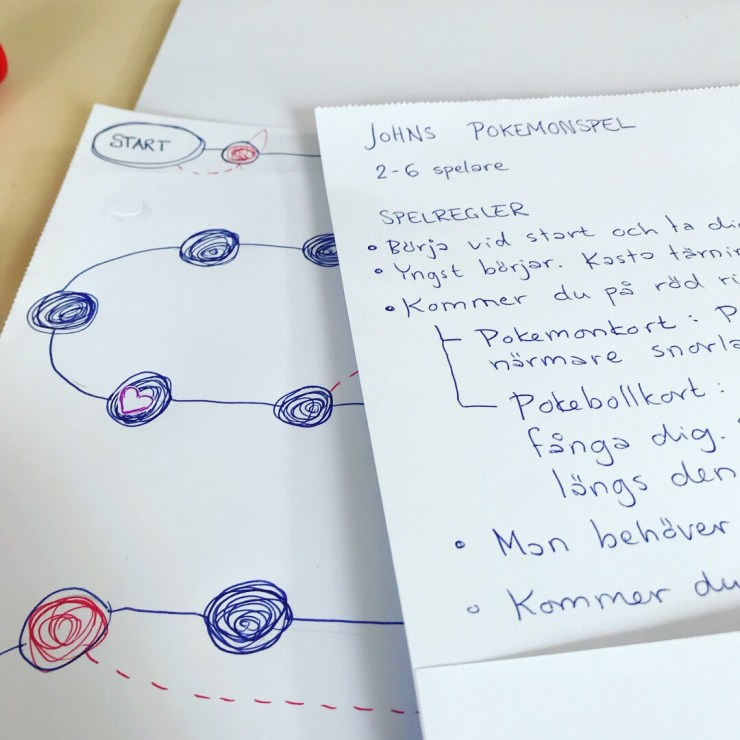 START
JOHNS POKEMONSPEL
2-6 spelare
SPELREGLER
• Börja vid start och ta
• Yngst börjar. Kasta
• Kommer du på röd
Pokemonkort:
närmare
Pokebollkort:
fånga dig.
längs den
• Man behöver
• Kommer du